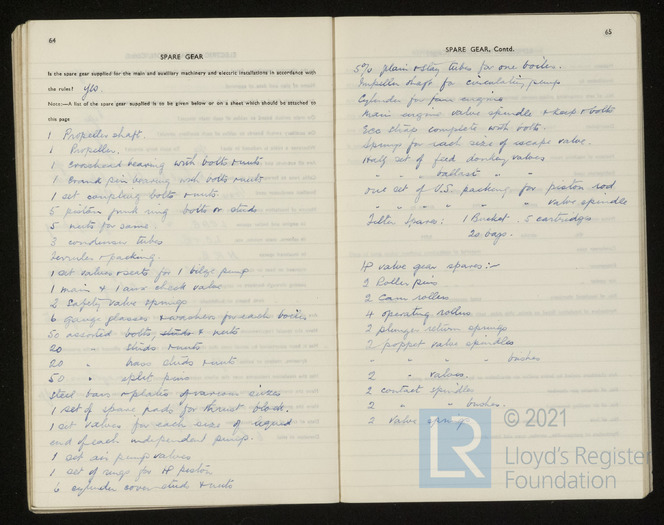 64
SPARE GEAR
Is the spare gear supplied for the main and auxiliary machinery and electric installations in accordance with
the rules? yes.
NOTE:—A list of the spare gear supplied is to be given below or on a sheet which should be attached to
this page
1 Propeller shaft.
1 Propeller.
1 Crosshead bearing with bolts & nuts
1 Crank pin bearing with bolts & nuts
1 set coupling bolts & nuts.
5 piston junk ring bolts or studs
5 nuts for same
3 condenser tubes
ferrules & packing.
1 set valves & seats for 1 bilge pump
1 main & 1 aux check valve
2 Safety valve springs
6 gauge glasses & washers for each boiler
50 assorted bolts, studs & nuts
20 " studs & nuts
20 " brass studs & nuts
50 " split pins
Steel bars & plates of various sizes
1 set of spare pads for thrust block.
1 set valves for each size of
end of each independent pump.
1 set air pump valves
1 set of rings for HP piston
6 cylinder cover stud & nuts
65
SPARE GEAR, Contd.
5% plain & stay tubes for one boiler.
Impeller shaft for circulating pump
Cylinder for engine
Main engine valve spindle & bolts
Ecc strap complete with bolts.
Springs for each size of escape valve.
Half set of feed donkey valves
" " " ballast " "
one set of U.S. packing for piston rod
" " " " " " valve spindle
Filter Spares: 1 Bucket. 5 cartridges
20 bags.
HP valve gear spares:-
2 Roller pins
2 Cam rollers
4 operating rollers
2 plunger return springs
2 poppet valve spindles
" " " " bushes
2 " valves.
2 contact spindles
2 " " bushes.
2 Valve spring
LR
© 2021
Lloyd's Register
Foundation